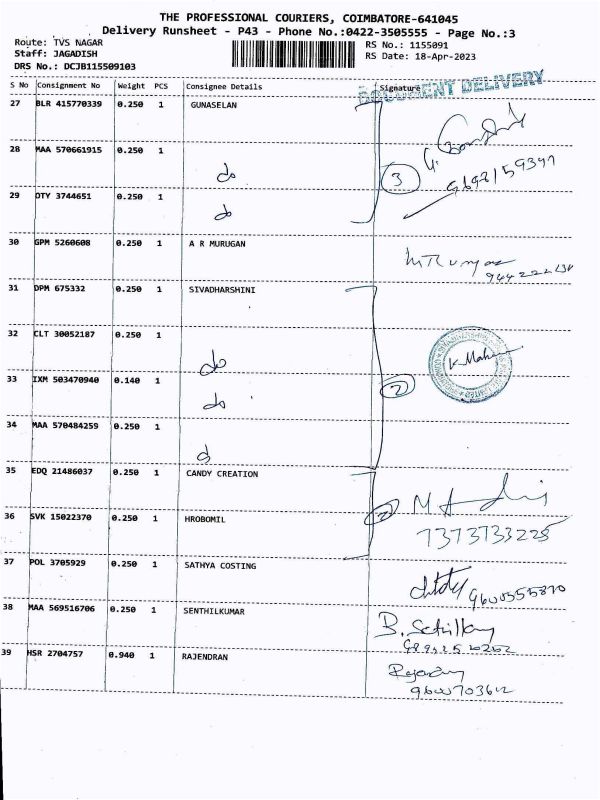 THE PROFESSIONAL COURIERS, COIMBATORE-641045
Delivery Runsheet - P43 - Phone No.:0422-3505555 - Page No.:3
Route: TVS NAGAR
RS No.: 1155091
Staff: JAGADISH
RS Date: 18-Apr-2023
DRS No.: DCJB115509103
S No Consignment No Weight PCS Consignee Details Signature
DOCUMENT DELIVERY
27 BLR 415770339 0.250 1 GUNASELAN
28 MAA 570661915 0.250 1 do
3
29 DTY 3744651 0.250 1 do
30 GPM 5260608 0.250 1 A R MURUGAN
31 DPM 675332 0.250 1 SIVADHARSHINI
32 CLT 30052187 0.250 1 do
K. Mahe
33 IXM 503470940 0.140 1 do
34 MAA 570484259 0.250 1 d
35 EDQ 21486037 0.250 1 CANDY CREATION
36 SVK 15022370 0.250 1 HROBOMIL
7373733225
37 POL 3705929 0.250 1 SATHYA COSTING
9600555870
38 MAA 569516706 0.250 1 SENTHILKUMAR
39 HSR 2704757 0.940 1 RAJENDRAN
9600703612